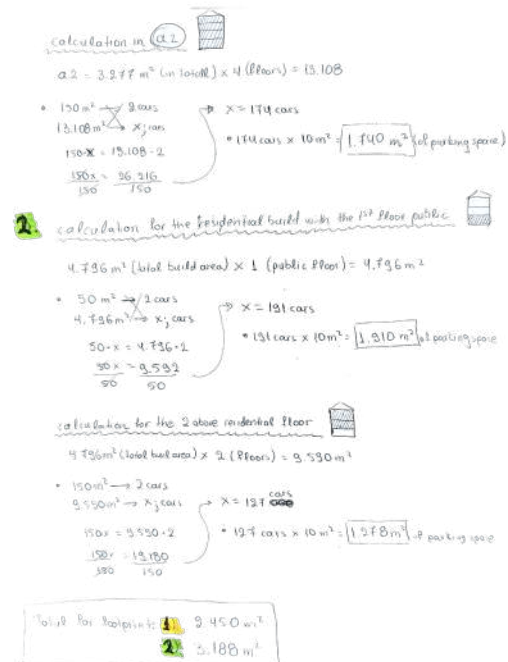 calculation in a2
a2 = 3.277 m² (in totall) x 4 (floors) = 13.108
• 150 m² → 2 cars
13.108 m² → x; cars
150·x = 13.108·2
150x = 26.216
150 150
→ x = 174 cars
• 174 cars x 10 m² = 1.740 m² (of parking space)
2. calculation for the residential build with the 1st floor public
4.796 m² (total build area) x 1 (public floor) = 4.796 m²
• 50 m² → 2 cars
4.796 m² → x; cars
50·x = 4.796·2
50x = 9.592
50 50
→ x = 191 cars
• 191 cars x 10 m² = 1.910 m² of parking space
calculation for the 2 above residential floor
4.796 m² (total build area) x 2 (floors) = 9.590 m²
• 150 m² → 2 cars
9.590 m² → x; cars
150x = 9.590·2
150x = 19.180
150 150
→ x = 127 cars
• 127 cars x 10 m² = 1.278 m² of parking space
Total for footprint: 1. 2.450 m²
2. 3.188 m²